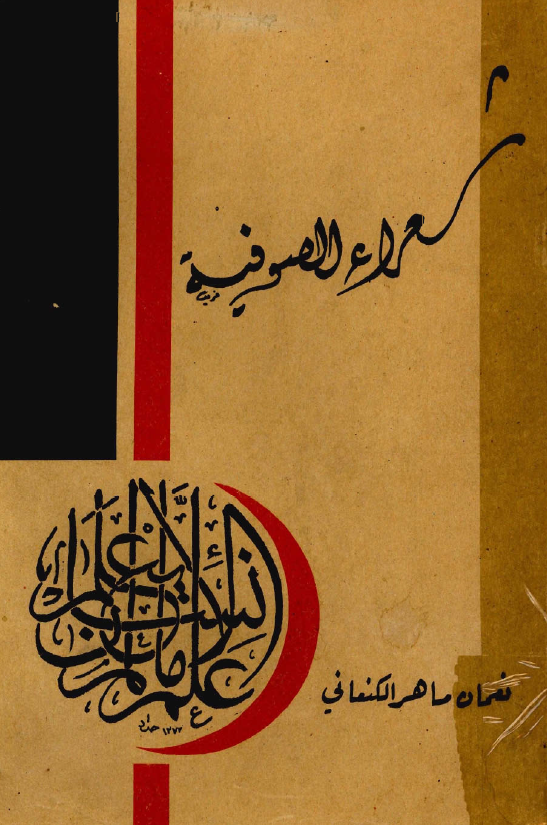 شعراء الصوفية
علم الإنسان ما لم يعلم
نعمان ماهر الكنعاني